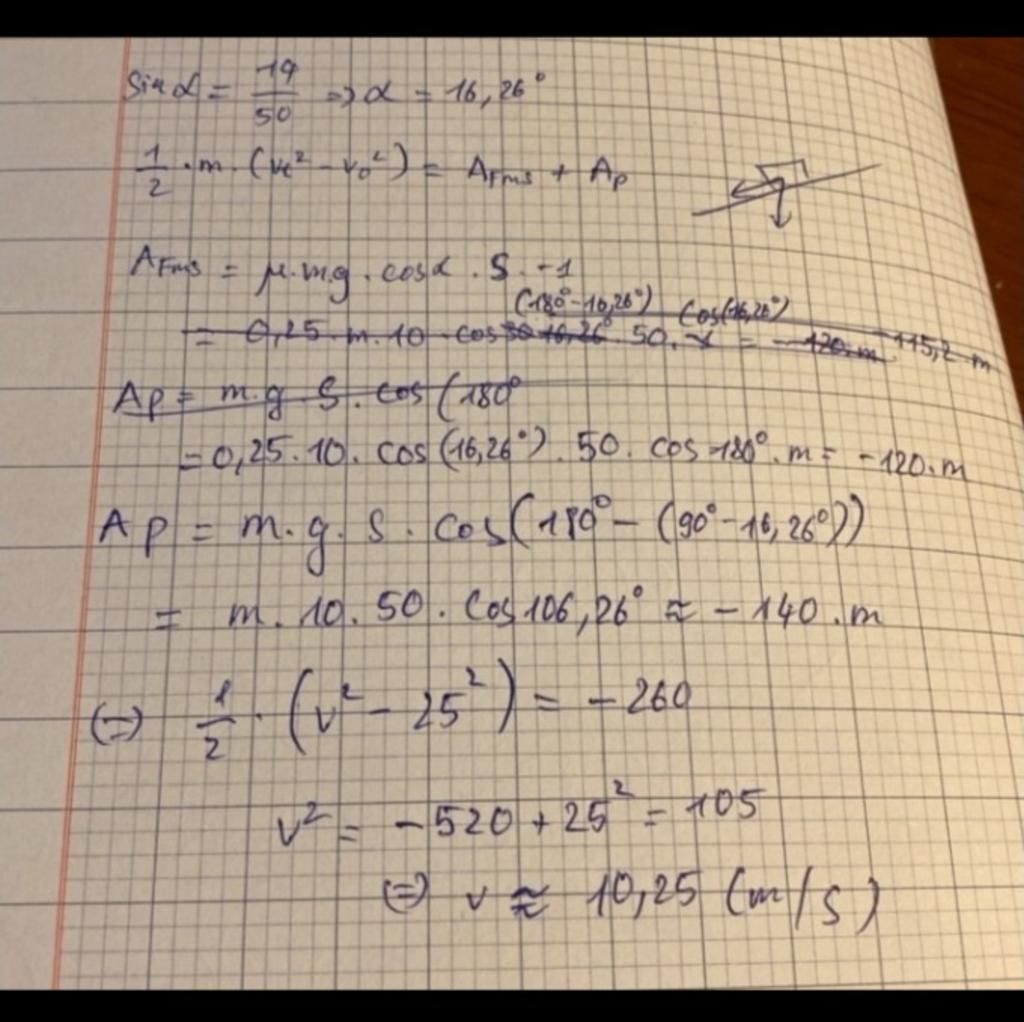 Sin α = 14/50 => α = 16,26°
1/2 . m . (vt² - v0²) = AFms + Ap
AFms = μ.m.g . cosα . S . -1
(180° - 16,26°) cos(16,26°)
= 0,25 . m . 10 . cos 16,26° . 50 . = -120.m -115,2 m
Ap = m.g S. cos (180°
= 0,25.10. cos(16,26°) . 50. cos 180° . m = -120.m
Ap = m.g. S. cos(180° - (90° - 16,26°))
= m. 10. 50. cos 106,26° ≈ -140 . m
(=) 1/2 . (v² - 25²) = -260
v² = -520 + 25² = 105
(=) v ≈ 10,25 (m/s)